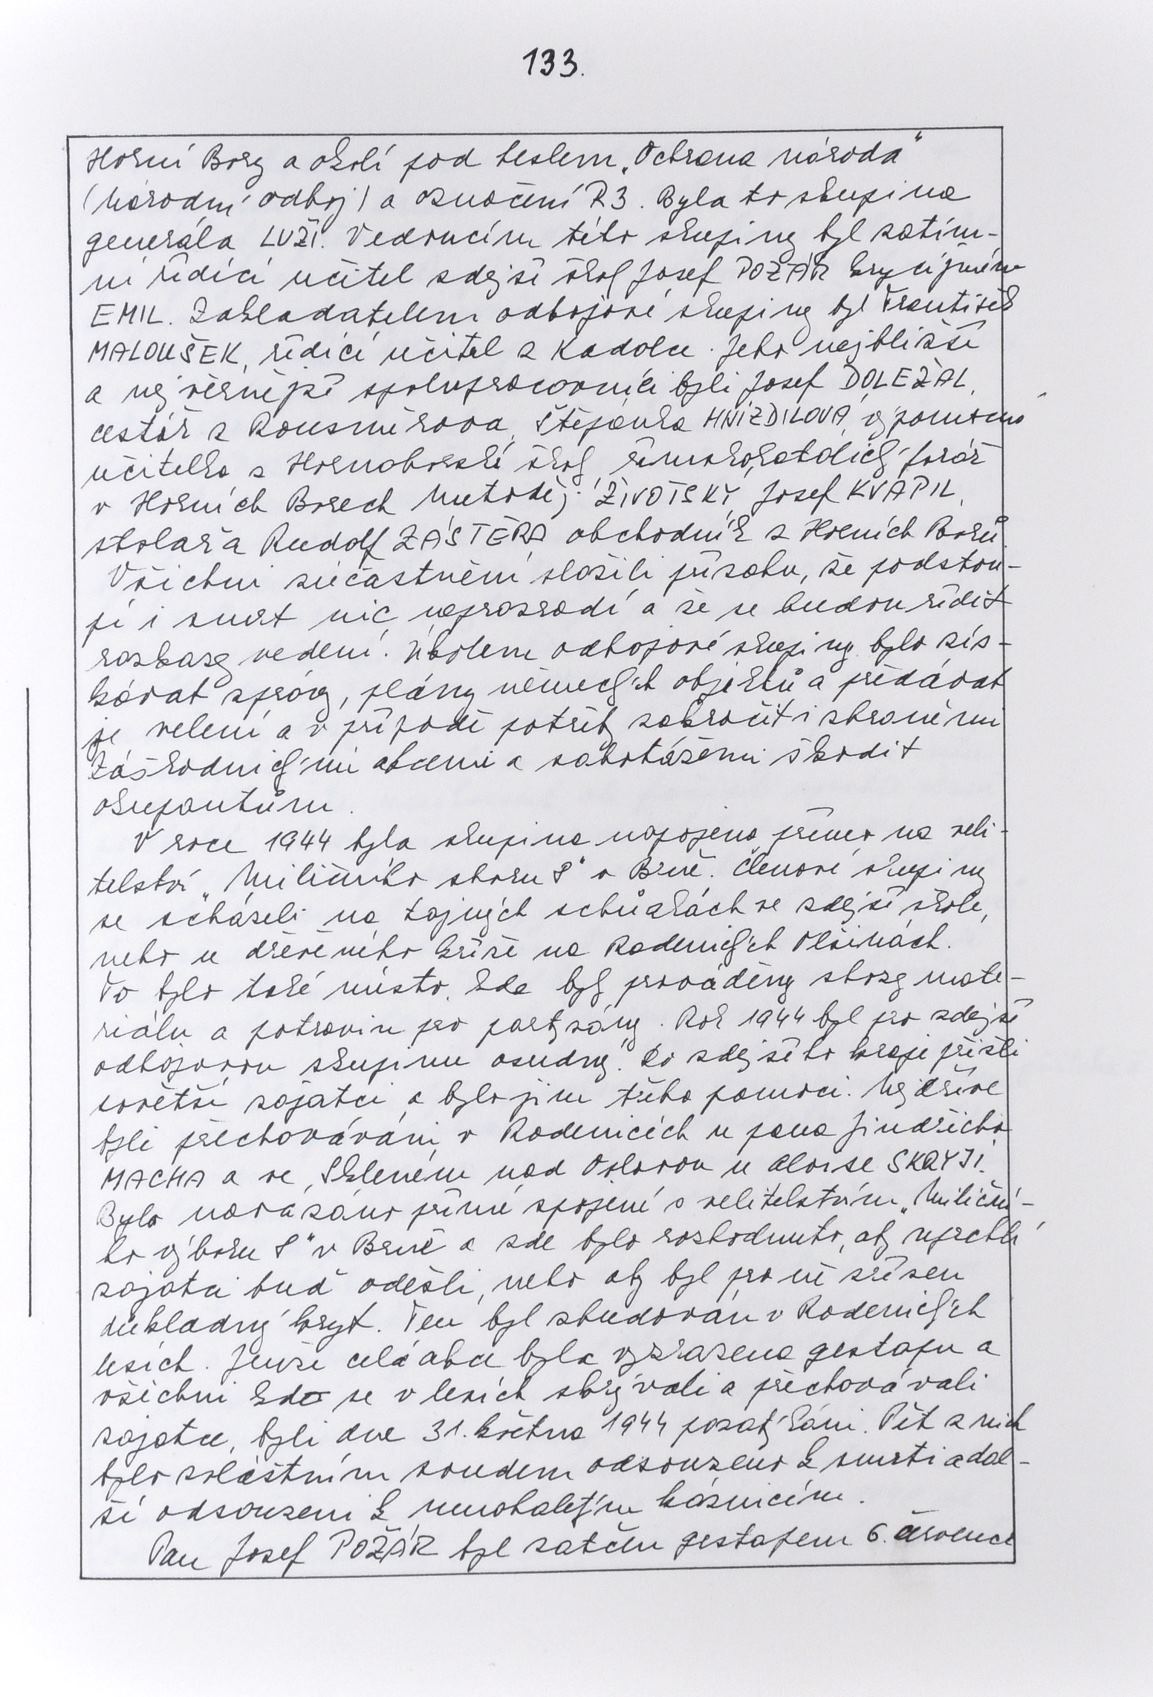 133.
Horní Bory a okolí pod heslem „Ochrana národa"
(národní odboj) a označení R3. Byla to skupina
generála LUŽI. Vedoucím této skupiny byl zatím-
ní řídící učitel zdejší školy Josef POŽÁR krycí jméno
EMIL. Zakladatelem odbojové skupiny byl František
MALOUŠEK, řídící učitel z Kadolce. Jeho nejbližší
a nejvěrnější spolupracovníci byli Josef DOLEŽAL,
cestář z Rousměrova, Štěpánka HNÍZDILOVÁ, výpomocná
učitelka z Hornoborské školy, římskokatolický farář
v Horních Borech Metoděj ŽIVOTSKÝ, Josef KVAPIL,
stolař a Rudolf ZÁSTĚRA obchodník z Horních Borů.
Všichni zúčastnění složili přísahu, že podstou-
pí i smrt nic neprozradí a že se budou řídit
rozkazy vedení. Úkolem odbojové skupiny bylo zís-
kávat zprávy, plány německých objektů a předávat
je velení a v případě potřeby zakročit i zbraněmi
záškodnickými akcemi a sabotážemi škodit
okupantům.
V roce 1944 byla skupina napojena přímo na veli-
telství „Miličního sboru S" v Brně. Členové skupiny
se scházeli na tajných schůzkách ve zdejší škole,
nebo u dřevěného kříže na Radenických Olšinách.
To bylo také místo, kde byly prováděny sbory mate-
riálu a potravin pro partyzány. Rok 1944 byl pro zdejší
odbojovou skupinu osudný. Do zdejšího kraje přišli
sovětští zajatci a bylo jim třeba pomoci. Nejdříve
byli přechováváni v Radenicích u pana Jindřicha
MACHA a ve Skleném nad Oslavou u Aloise SKRYJI.
Bylo navázáno přímé spojení s velitelstvím „Miliční-
ho výboru S" v Brně a zde bylo rozhodnuto, aby uprchlí
zajatci buď odešli, nebo aby byl pro ně zřízen
důkladný kryt. Ten byl zbudován v Radenických
lesích. Jenže celá akce byla vyzrazena gestapu a
všichni kdo se v lesích skrývali a přechovávali
zajatce, byli dne 31. května 1944 pozatýkáni. Pět z nich
bylo zvláštním soudem odsouzeno k smrti a dal-
ší odsouzeni k mnohaletým káznicím.
Pan Josef POŽÁR byl zatčen gestapem 6. července